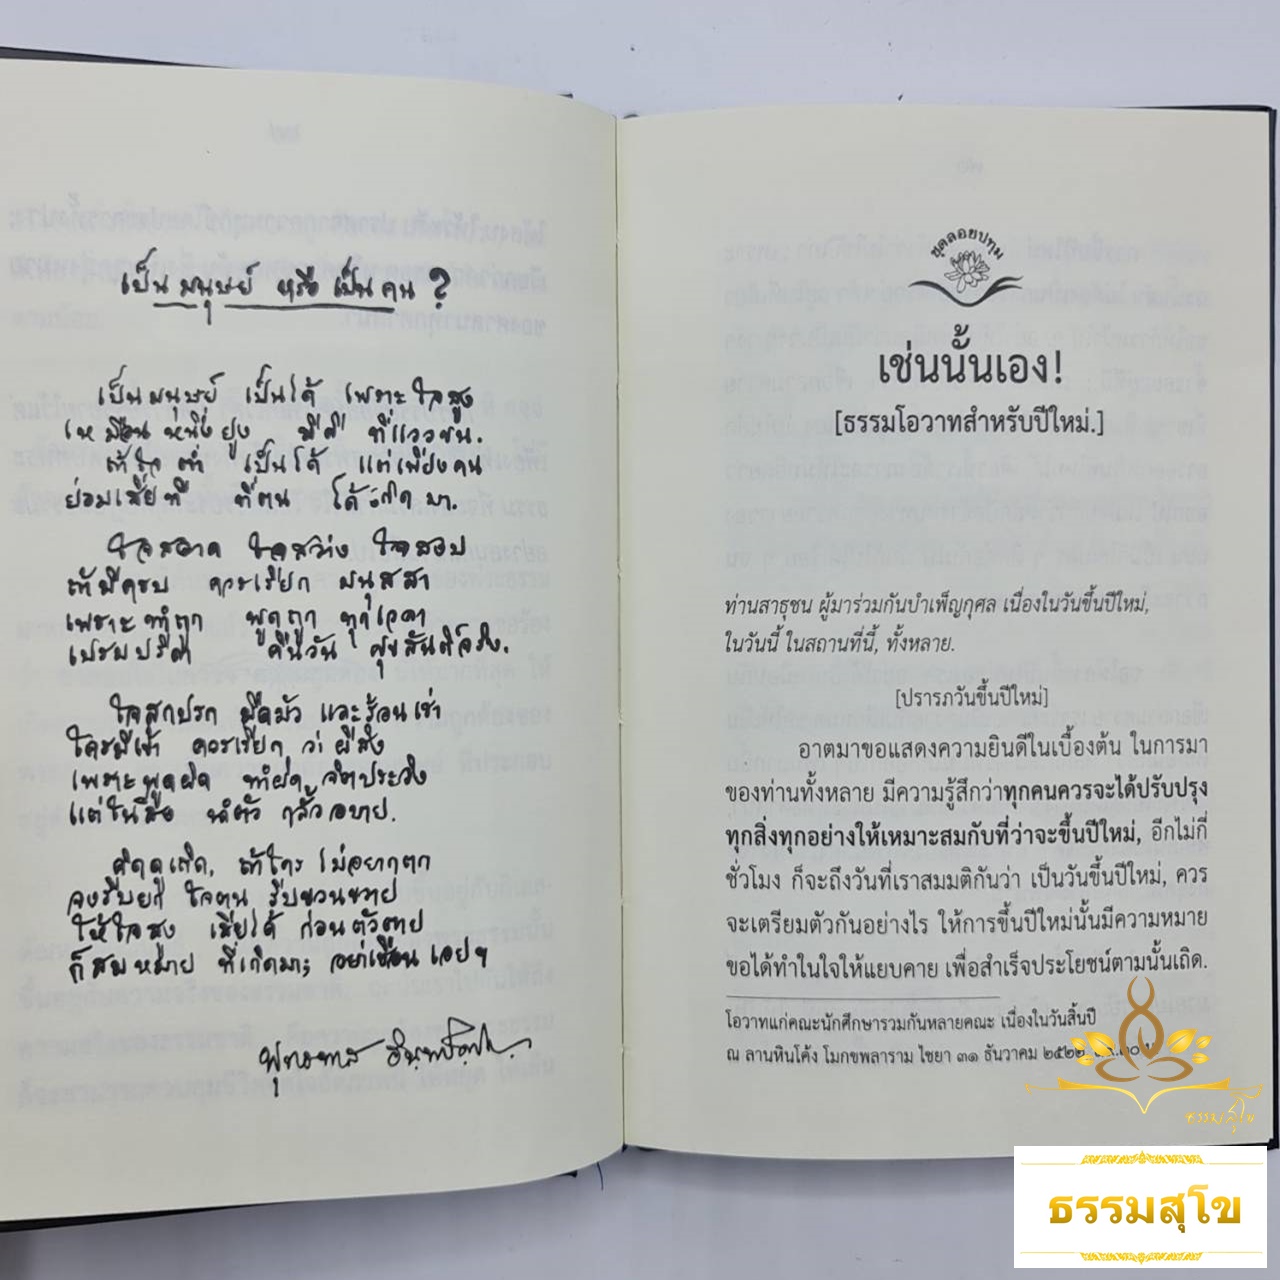 เป็นมนุษย์ หรือ เป็นคน ?
เป็นมนุษย์ เป็นได้ เพราะใจสูง
เหมือนหนึ่งยูง มีดี ที่แววขน.
ถ้าใจต่ำ เป็นได้ แต่เพียงคน
ย่อมเสียที ที่ตน ได้เกิดมา.
ใจสอาด ใจสว่าง ใจสงบ
ถ้ามีครบ ควรเรียก มนุสสา
เพราะทำถูก พูดถูก ทุกเวลา
เปรมปรีดา คืนวัน สุขสันติ์จริง.
ใจสกปรก มืดมัว และร้อนเร่า
ใครมีเข้า ควรเรียก ว่าผีสิง
เพราะพูดผิด ทำผิด จิตประวิง
แต่ในสิ่ง นำตัว กลั้วอบาย.
คิดดูเถิด, ถ้าใคร ไม่อยากตก
จงรีบยก ใจตน รีบขวนขวาย
ให้ใจสูง เสียได้ ก่อนตัวตาย
ก็สมหมาย ที่เกิดมา; อย่าเชือนเอยฯ
พุทธทาส อินฺทปัญฺโญ
ชุดลอยปทุม
เช่นนั้นเอง!
[ธรรมโอวาทสำหรับปีใหม่.]
ท่านสาธุชน ผู้มาร่วมกันบำเพ็ญกุศล เนื่องในวันขึ้นปีใหม่,
ในวันนี้ ในสถานที่นี้, ทั้งหลาย.
[ปรารภวันขึ้นปีใหม่]
อาตมาขอแสดงความยินดีในเบื้องต้น ในการมา
ของท่านทั้งหลาย มีความรู้สึกว่าทุกคนควรจะได้ปรับปรุง
ทุกสิ่งทุกอย่างให้เหมาะสมกับที่ว่าจะขึ้นปีใหม่, อีกไม่กี่
ชั่วโมง ก็จะถึงวันที่เราสมมติกันว่า เป็นวันขึ้นปีใหม่, ควร
จะเตรียมตัวกันอย่างไร ให้การขึ้นปีใหม่นั้นมีความหมาย
ขอได้ทำในใจให้แยบคาย เพื่อสำเร็จประโยชน์ตามนั้นเถิด.
โอวาทแก่คณะนักศึกษารวมกันหลายคณะ เนื่องในวันสิ้นปี
ณ ลานหินโค้ง โมกขพลาราม ไชยา ๓๑ ธันวาคม ๒๕๒๒
ธรรมสุโข
ธรรมสุโข